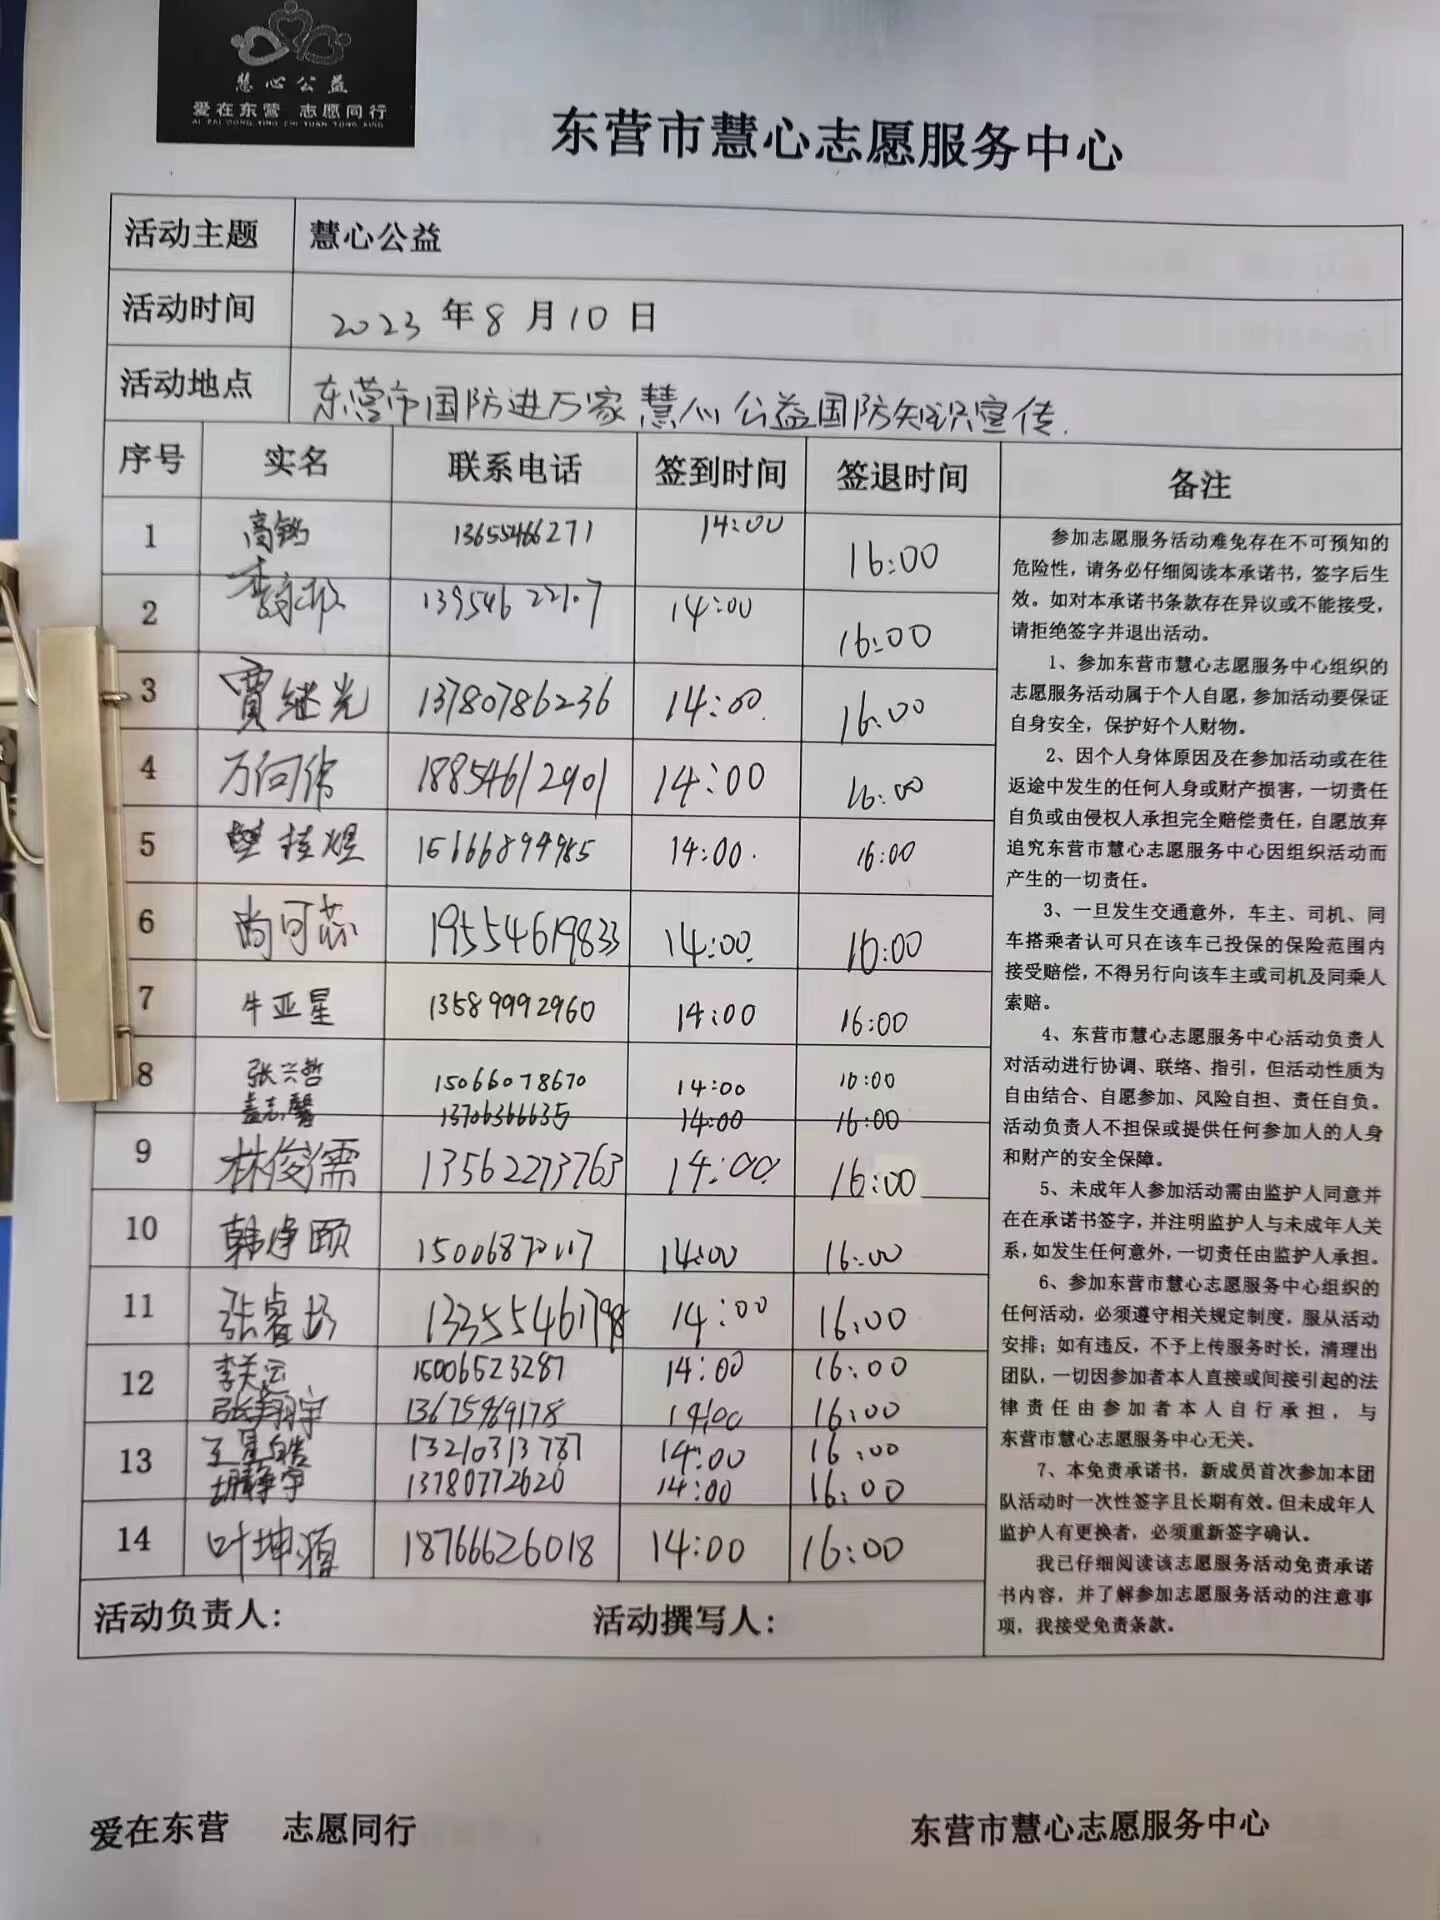 慧心公益
爱在东营 志愿同行
AI ZAI DONG YING ZHI YUAN TONG XING
东营市慧心志愿服务中心
活动主题 慧心公益
活动时间 2023年8月10日
活动地点 东营市国防进万家慧心公益国防知识宣传.
序号 实名 联系电话 签到时间 签退时间 备注
1 13655466271 14:00 16:00
2 14:00 16:00
3 賈继光 13780786236 14:00 16:00
4 18854612901 14:00 16:00
5 樊桂煜 15666894985 14:00 16:00
6 尚可蕊 19554619833 14:00 16:00
7 牛亚星 13589992960 14:00 16:00
8 张兴哲 15066078670 14:00 16:00
孟志馨 13706366635 14:00 16:00
9 林俊儒 13562273763 14:00 16:00
10 14:00 16:00
11 13355461798 14:00 16:00
12 15006523287 14:00 16:00
张翔宇 13675969178 14:00 16:00
13 王星皓 13210313787 14:00 16:00
胡静宇 13780772620 14:00 16:00
14 叶坤源 18766626018 14:00 16:00
参加志愿服务活动难免存在不可预知的
危险性，请务必仔细阅读本承诺书，签字后生
效。如对本承诺书条款存在异议或不能接受，
请拒绝签字并退出活动。
1、参加东营市慧心志愿服务中心组织的
志愿服务活动属于个人自愿，参加活动要保证
自身安全，保护好个人财物。
2、因个人身体原因及在参加活动或在往
返途中发生的任何人身或财产损害，一切责任
自负或由侵权人承担完全赔偿责任，自愿放弃
追究东营市慧心志愿服务中心因组织活动而
产生的一切责任。
3、一旦发生交通意外，车主、司机、同
车搭乘者认可只在该车已投保的保险范围内
接受赔偿，不得另行向该车主或司机及同乘人
索赔。
4、东营市慧心志愿服务中心活动负责人
对活动进行协调、联络、指引，但活动性质为
自由结合、自愿参加、风险自担、责任自负。
活动负责人不担保或提供任何参加人的人身
和财产的安全保障。
5、未成年人参加活动需由监护人同意并
在在承诺书签字，并注明监护人与未成年人关
系，如发生任何意外，一切责任由监护人承担。
6、参加东营市慧心志愿服务中心组织的
任何活动，必须遵守相关规定制度，服从活动
安排；如有违反，不予上传服务时长，清理出
团队，一切因参加者本人直接或间接引起的法
律责任由参加者本人自行承担，与
东营市慧心志愿服务中心无关。
7、本免责承诺书，新成员首次参加本团
队活动时一次性签字且长期有效。但未成年人
监护人有更换者，必须重新签字确认。
我已仔细阅读该志愿服务活动免责承诺
书内容，并了解参加志愿服务活动的注意事
项，我接受免责条款。
活动负责人： 活动撰写人：
爱在东营 志愿同行 东营市慧心志愿服务中心